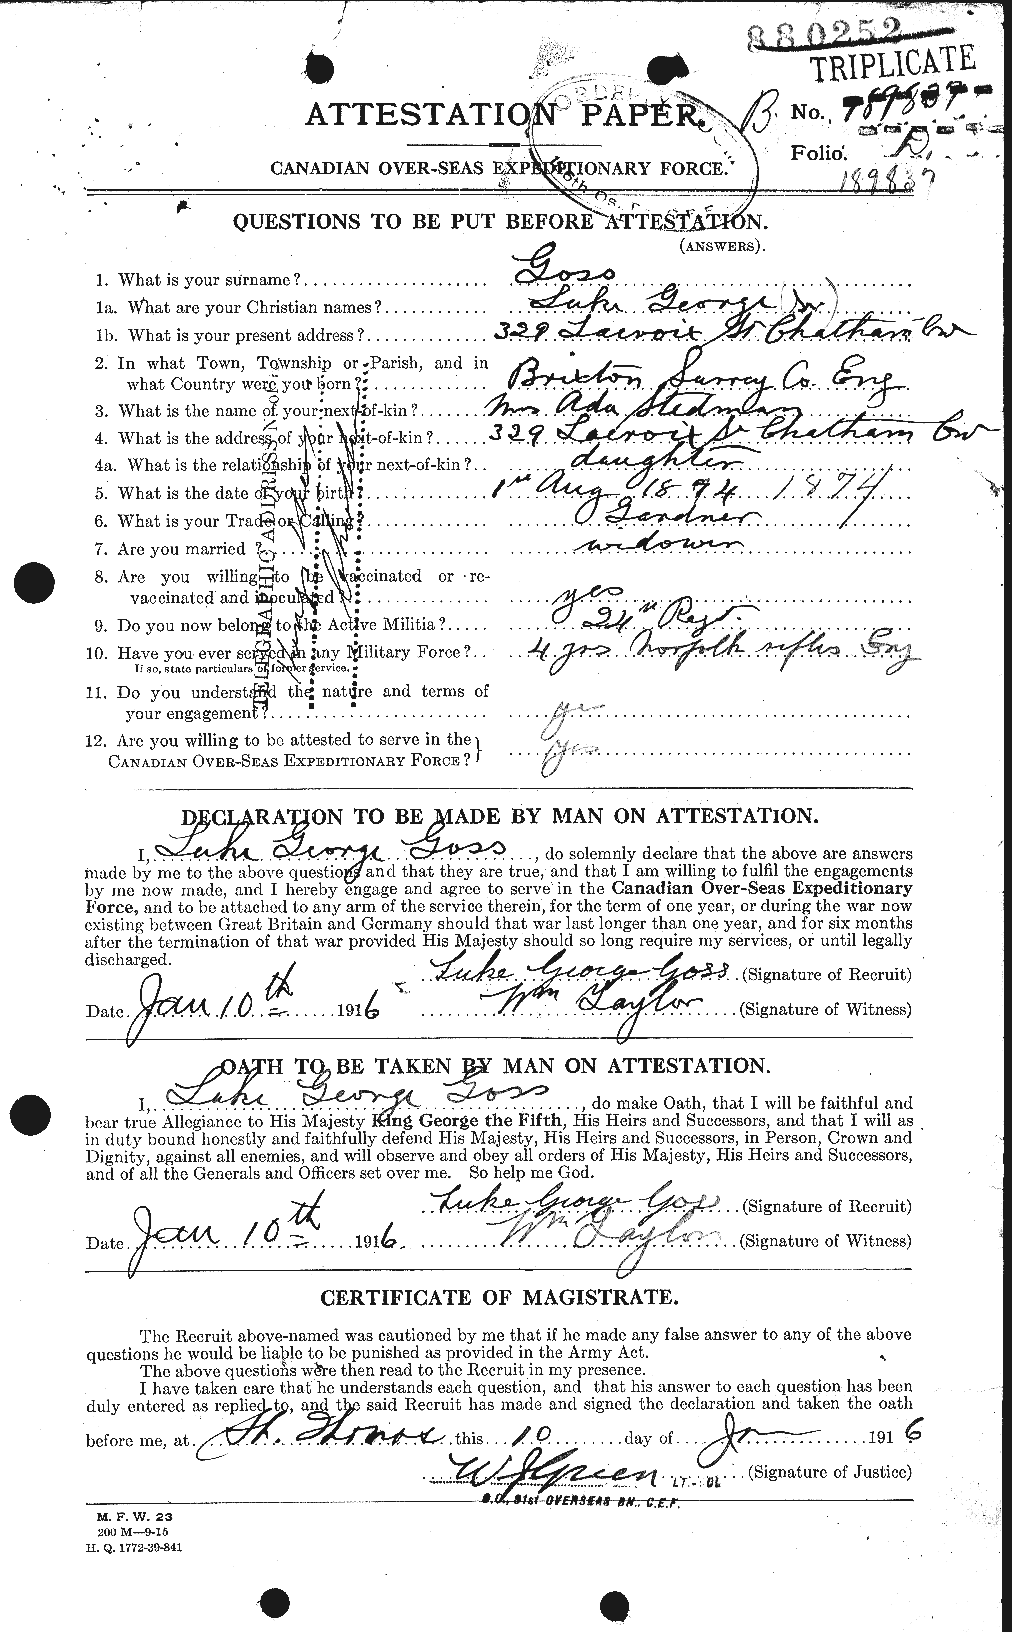 880252
TRIPLICATE
ATTESTATION PAPER.
B. No. 789837
Folio. D.
189837
CANADIAN OVER-SEAS EXPEDITIONARY FORCE.
QUESTIONS TO BE PUT BEFORE ATTESTATION.
(ANSWERS).
1. What is your surname? Goss
1a. What are your Christian names? Luke George (Sr)
1b. What is your present address? 329 Lacroix St Chatham Ow
2. In what Town, Township or Parish, and in
what Country were you born? Brixton Surrey Co. Eng
3. What is the name of your next-of-kin? Mrs Ada Stedman
4. What is the address of your next-of-kin? 329 Lacroix St Chatham Ow
4a. What is the relationship of your next-of-kin? daughter
5. What is the date of your birth? 1st Aug 1874 1874
6. What is your Trade or Calling? Gardner
7. Are you married? widower
8. Are you willing to be vaccinated or re-
vaccinated and inoculated? yes
9. Do you now belong to the Active Militia? 24th Regt.
10. Have you ever served in any Military Force? 4 yrs Norfolk rifles Eng
If so, state particulars of former service.
11. Do you understand the nature and terms of
your engagement? yes
12. Are you willing to be attested to serve in the
CANADIAN OVER-SEAS EXPEDITIONARY FORCE? yes
TELEGRAPHIC ADDRESS N. OF
DECLARATION TO BE MADE BY MAN ON ATTESTATION.
I, Luke George Goss, do solemnly declare that the above are answers
made by me to the above questions and that they are true, and that I am willing to fulfil the engagements
by me now made, and I hereby engage and agree to serve in the Canadian Over-Seas Expeditionary
Force, and to be attached to any arm of the service therein, for the term of one year, or during the war now
existing between Great Britain and Germany should that war last longer than one year, and for six months
after the termination of that war provided His Majesty should so long require my services, or until legally
discharged.
Luke George Goss (Signature of Recruit)
Date Jan 10th 1916 Wm Taylor (Signature of Witness)
OATH TO BE TAKEN BY MAN ON ATTESTATION.
I, Luke George Goss, do make Oath, that I will be faithful and
bear true Allegiance to His Majesty King George the Fifth, His Heirs and Successors, and that I will as
in duty bound honestly and faithfully defend His Majesty, His Heirs and Successors, in Person, Crown and
Dignity, against all enemies, and will observe and obey all orders of His Majesty, His Heirs and Successors,
and of all the Generals and Officers set over me. So help me God.
Luke George Goss (Signature of Recruit)
Date Jan 10th 1916. Wm Taylor (Signature of Witness)
CERTIFICATE OF MAGISTRATE.
The Recruit above-named was cautioned by me that if he made any false answer to any of the above
questions he would be liable to be punished as provided in the Army Act.
The above questions were then read to the Recruit in my presence.
I have taken care that he understands each question, and that his answer to each question has been
duly entered as replied to, and the said Recruit has made and signed the declaration and taken the oath
before me, at St. Thomas this 10 day of Jan 1916
W J Green LT.-COL (Signature of Justice)
O.C., 91st OVERSEAS BN., C.E.F.
M. F. W. 23
200 M—9-15
H. Q. 1772-39-841